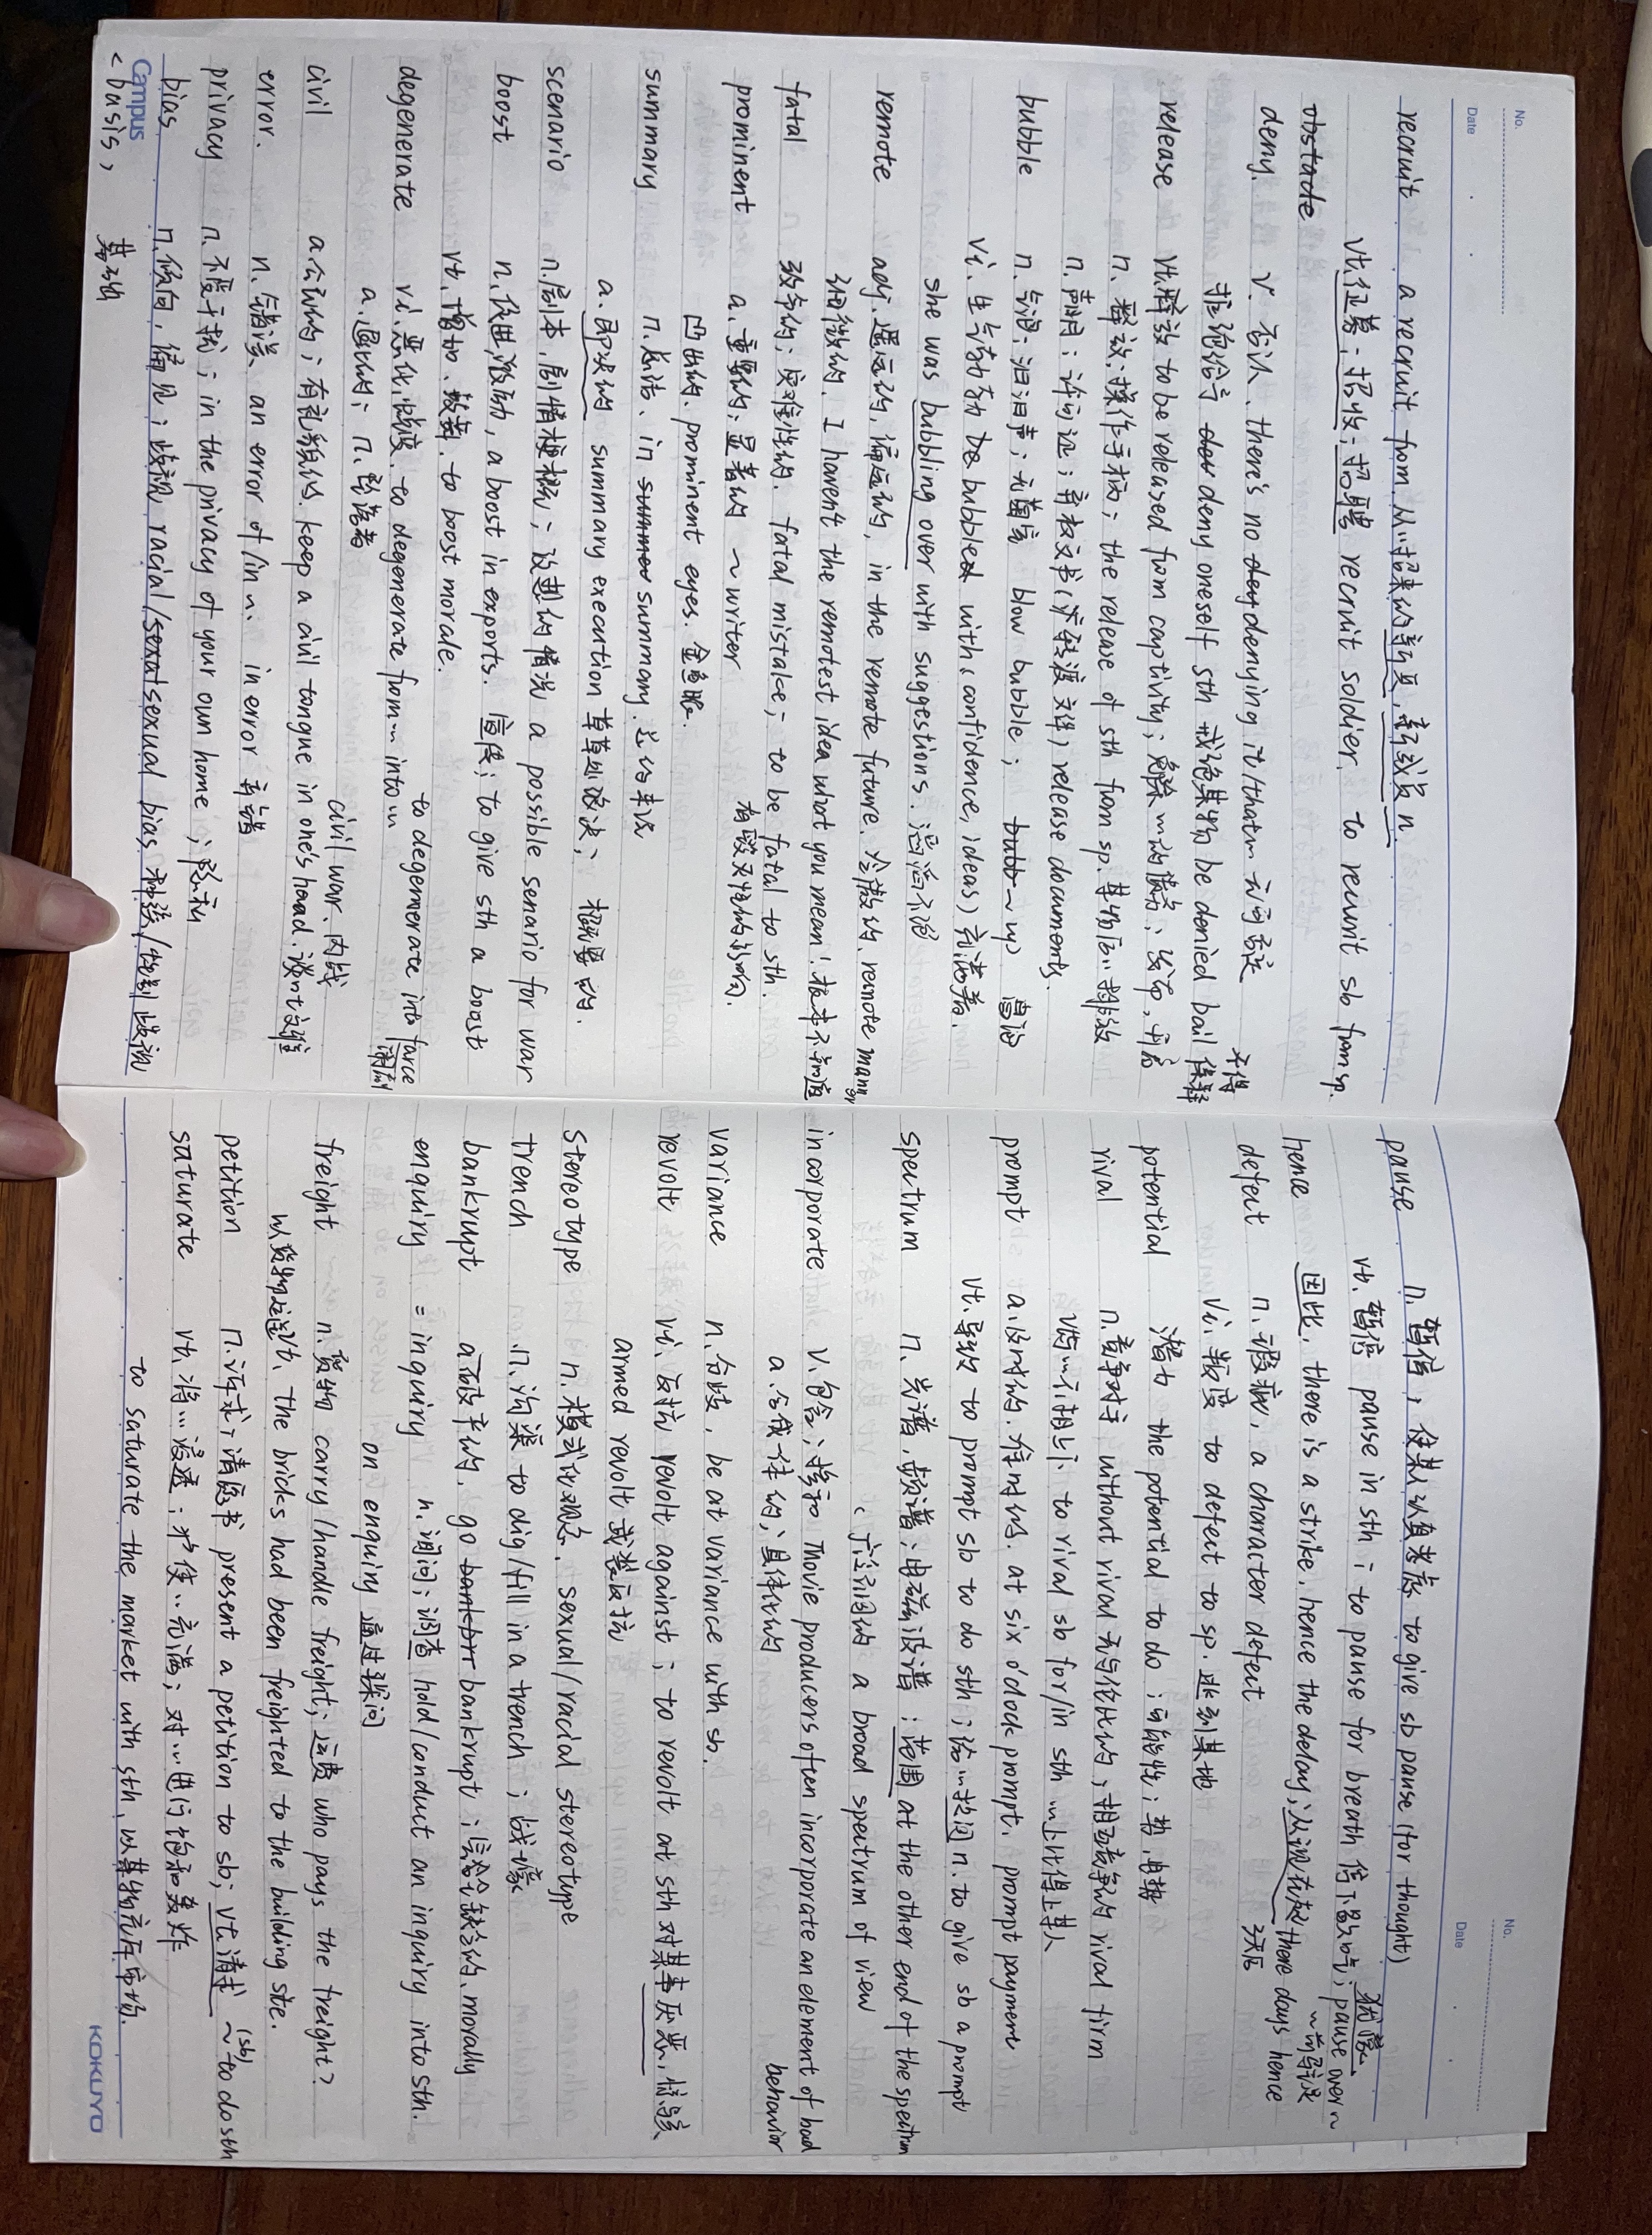 No.
Date
recruit a recruit from 从…招来的新兵,新成员 n.
vt.征募;招收;招聘 recruit soldier, to recruit sb from sp.
obstacle
deny. v. 否认、there's no denying it/that~ 无可否认
拒绝给予 deny oneself sth 戒绝某物 be denied bail 不得保释
release vt.释放 to be released from captivity; 免除…的债务、发布,
n. 释放; 操作手柄; the release of sth from sp. 某物从…释放
n. 许可证; release documents.
bubble n. 气泡; 汩汩声; 无菌室 blow bubble; ~up 冒泡
vi. 生气勃勃 be bubbled with (confidence, ideas) 充满着.
she was bubbling over with suggestions. 滔滔不绝
remote adj. 遥远的, 偏远的, in the remote future. 冷傲的, remote manner
细微的, I havent the remotest idea what you mean! 根本不知道
fatal 致命的; 灾难性的. fatal mistake; to be fatal to sth.
prominent a.重要的; 显著的 ~writer 有毁灭性的影响.
凸出的. prominent eyes. 金鱼眼.
summary n.总结、in summary. 总的来说
a.即决的 summary execution 草草处决; 概要的.
scenario n.剧本,剧情梗概; 设想的情况 a possible senario for war
boost n.促进,激励, a boost in exports. 宣传; to give sth a boost
vt.增加、鼓舞. to boost morale.
degenerate vi.恶化,堕落. to degenerate from… into… to degenerate into farce 闹剧
a.退化的; n.堕落者
civil a.公民的; 有礼貌的. keep a civil tongue in one's head. civil war.内战
error. n.错误 an error of/in ~. in error 有错
privacy n.不受干扰; in the privacy of your own home; 隐私
bias n.倾向,偏见; 歧视 racial/sexual bias, 种族/性别歧视
Campus
<basis, 基础
No.
Date
pause n.暂停, 使某人认真考虑 to give sb pause (for thought)
vt.暂停 pause in sth; to pause for breath 停下歇口气; pause over~ 犹豫
hence 因此. there is a strike, hence the delay; 从现在起 there days hence
defect n.瑕疵, a character defect
vi.叛变 to defect to sp. 叛
potential 潜力 the potential to do; 可能性; 势,电势
rival n.竞争对手 without rival 无与伦比的; 相互竞争的 rival firm
与…不相上下 to rival sb for/in sth …上比得上某人
prompt a.及时的.准时的. at six o'clock prompt. prompt payment
vt.导致 to prompt sb to do sth; 给…提词 n. to give sb a prompt
spectrum n. 光谱,频谱; 电磁波谱; 范围 at the other end of the spectrum
a broad spectrum of view
incorporate v.包含; 掺和 Movie producers often incorporate an element of bad behavior
a.合成一体的; 具体化的
variance n.分歧, be at variance with sb.
revolt vi. 反抗 revolt against; to revolt at sth 对某事厌恶,
armed revolt 武装反抗
stereotype n.模式化观念. sexual/racial stereotype
trench n.沟渠 to dig/fill in a trench; 战壕
bankrupt a.破产的. go bankrupt; 完全缺乏的. morally
enquiry = inquiry n.询问; 调查 hold/conduct an inquiry into sth.
on enquiry 通过探问
freight n.货物 carry/handle freight; 运费 who pays the freight?
以货物运送vt. the bricks had been freighted to the building site.
petition n.诉求; 请愿书 present a petition to sb; vt.请求 ~(sb) to do sth
saturate vt.将…浸透; 使…充满; 对…进行饱和轰炸
to saturate the market with sth. 以某物充斥市场.
KOKUYO